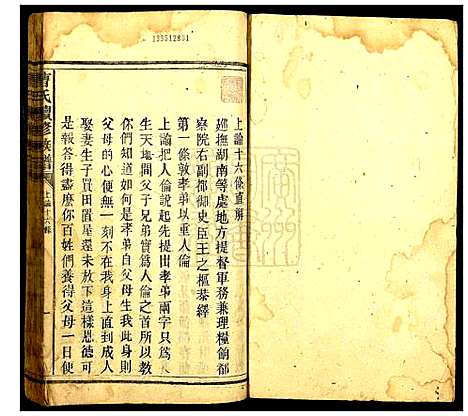 133512881
上諭十六條直解
廵撫湖南等處地方提督軍務兼理糧餉都
察院右副都御史臣王之樞恭繹
第一條敦孝弟以重人倫
上諭把人倫說起先提出孝弟兩字只爲人
生天塲間父子兄弟實爲人倫之首所以教
你們知道如何是孝弟自父母生我此身則
父母的恩無一刻不在我身上直到成人
娶妻生子買田置屋還未放下這樣恩德可
是報答得盡麽你百姓們養得父母一日便
曹氏續修族譜
上諭十六條
一